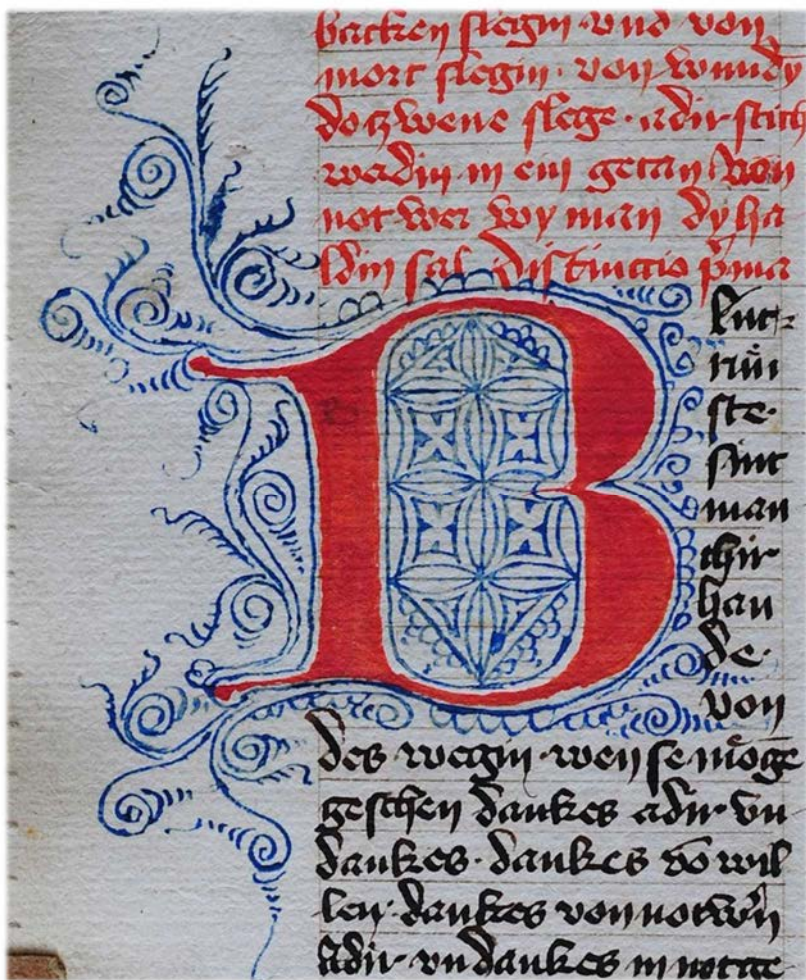 backen slegin · vnd von
mort slegin · von wundē
do tzwene slege · adir stich
werdin in ein getan Von
not wer wy man dy ha
ldin sal · distinctio p̄ma
B lut
rů̄n
ste ·
sint
man
chir
han
de ·
von
des wegin · wen se moͤge
geschen dankes adir · vn
dankes · dankes vō wil
len · dankes von notw̄n
Adir · vn dankes in